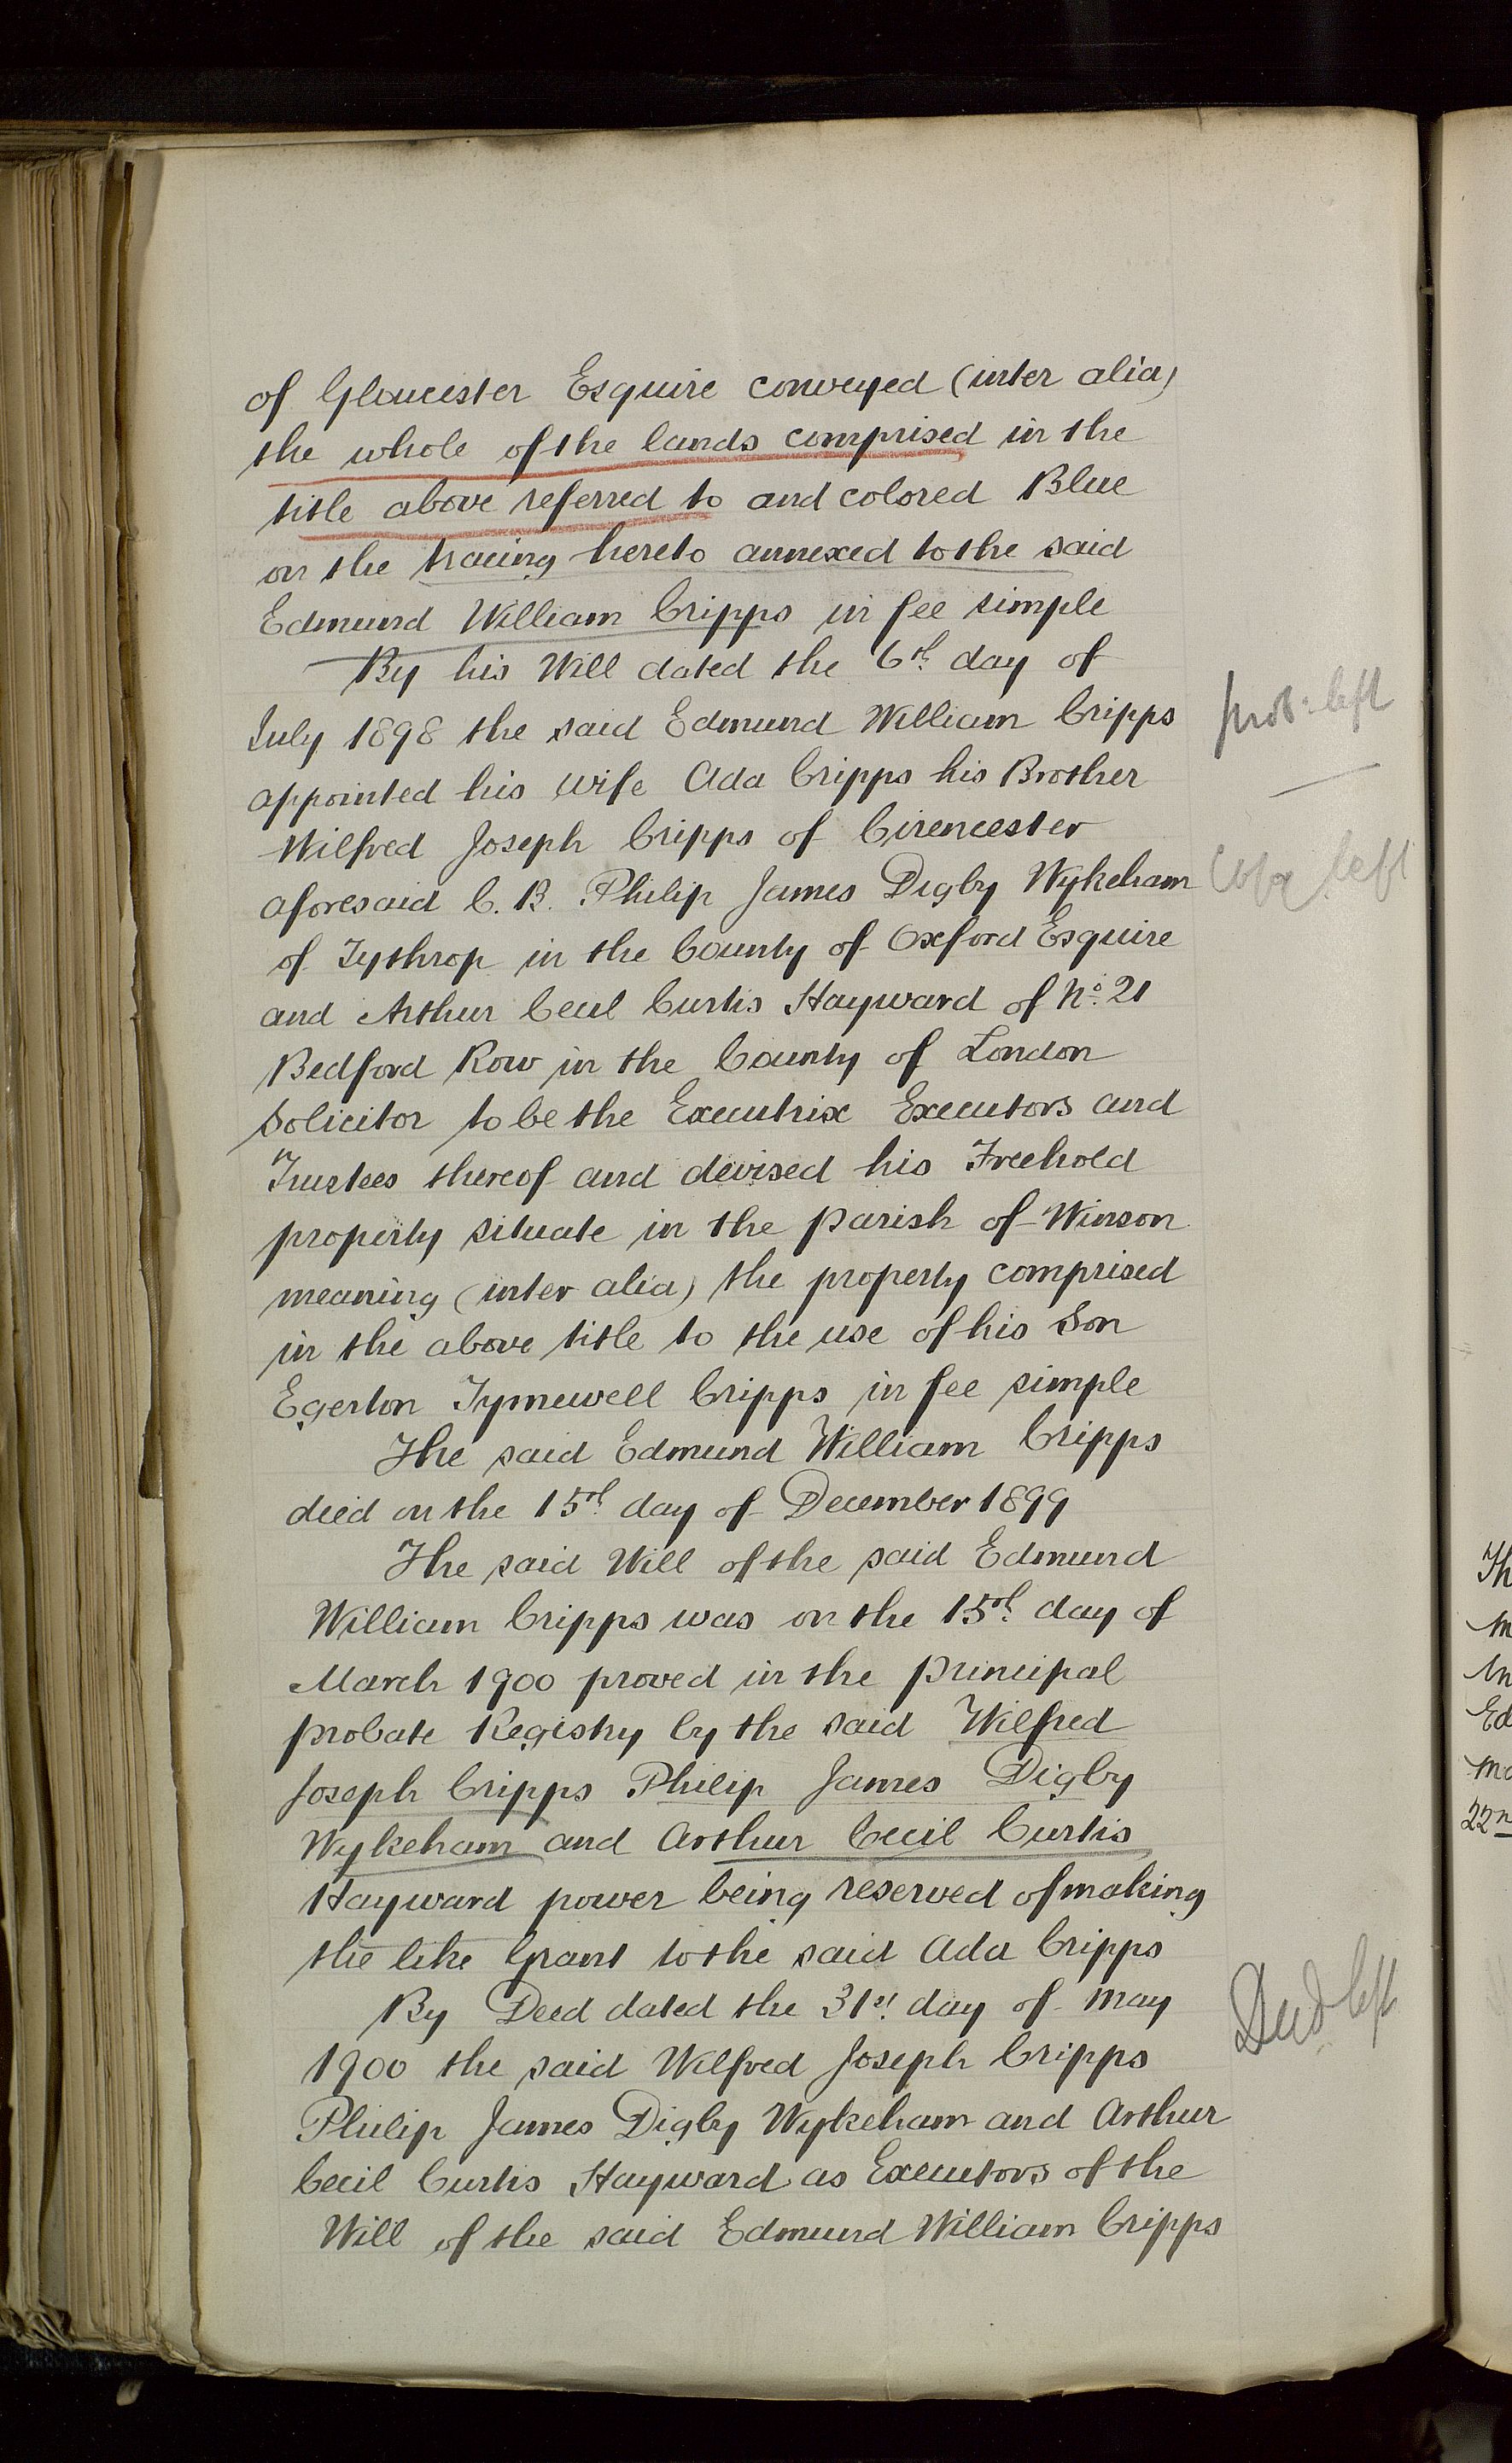 of Gloucester Esquire conveyed (inter alia)
the whole of the lands comprised in the
title above referred to and colored Blue
on the tracing hereto annexed to the said
Edmund William Cripps in fee simple
By his Will dated the 6th day of
July 1898 the said Edmund William Cripps
appointed his wife Ada Cripps his Brother
Wilfred Joseph Cripps of Cirencester
aforesaid C. B. Philip James Digby Wykeham
of Tythrop in the County of Oxford Esquire
and Arthur Cecil Curtis Hayward of No. 21
Bedford Row in the County of London
Solicitor to be the Executrix Executors and
Trustees thereof and devised his Freehold
property situate in the parish of Winson
meaning (inter alia) the property comprised
in the above title to the use of his Son
Egerton Tymewell Cripps in fee simple
The said Edmund William Cripps
died on the 15th day of December 1899
The said Will of the said Edmund
William Cripps was on the 15th day of
March 1900 proved in the principal
probate Registry by the said Wilfred
Joseph Cripps Philip James Digby
Wykeham and Arthur Cecil Curtis
Hayward power being reserved of making
the like Grant to the said Ada Cripps
By Deed dated the 31st day of May
1900 the said Wilfred Joseph Cripps
Philip James Digby Wykeham and Arthur
Cecil Curtis Hayward as Executors of the
Will of the said Edmund William Cripps
prob. left
Copy left
Deed left
Th
Ed
22n